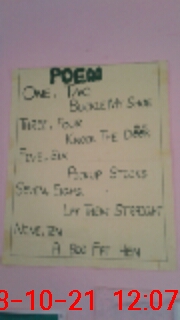 POEM
ONE, TWO
BUCKLE MY SHOE
THREE, FOUR
KNOCK THE DOOR
FIVE, SIX
PICKUP STICKS
SEVEN, EIGHT
LAY THEM STRAIGHT
NINE, TEN
A BIG FAT HEN
8-10-21 12:07